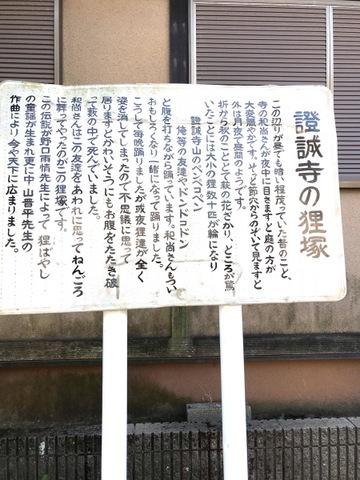 證誠寺の狸塚
この辺りが昼でも暗い程茂っていた昔のこと、
寺の和尚さんが夜中に目をさますと庭の方が
大変賑やかです。そっと節穴からのぞいて見ますと
外は月夜で昼間のようです。
折から秋のこととて萩の花ざかり、ところが驚
いたことには大小の狸数十匹が輪になり
證誠寺山のペンペコペン
俺等の友達やドンドコドン
と腹を打ちながら踊っています。和尚さんもつい
おもしろくなり一緒になって踊りました。
こうして毎晩踊りましたが或夜狸達が全く
姿を消してしまったので不思議に思って
居りますとかわいそうにもお腹をたたき破
って藪の中で死んでいました。
和尚さんはこの友達をあわれに思ってねんごろ
に葬ってやったのがこの狸塚です。
この伝説が野口雨情先生によって狸ばやし
の童謡が生まれ更に中山晋平先生の
作曲により今や天下に広まりました。